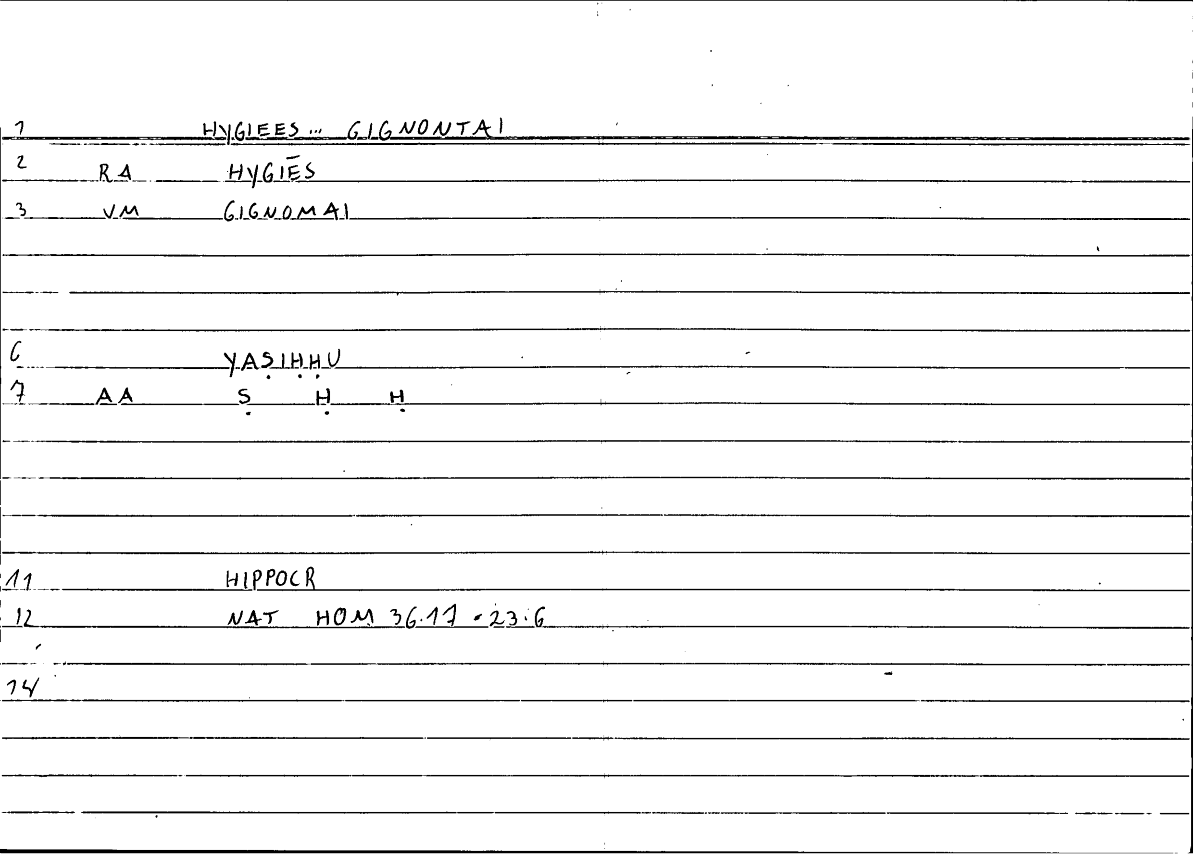 1 HYGIEES... GIGNONTAI
2 RA HYGIĒS
3 VM GIGNOMAI
6 YAṢIḤḤU
7 AA Ṣ Ḥ Ḥ
11 HIPPOCR
12 NAT HOM 36.17 - 23.6
14